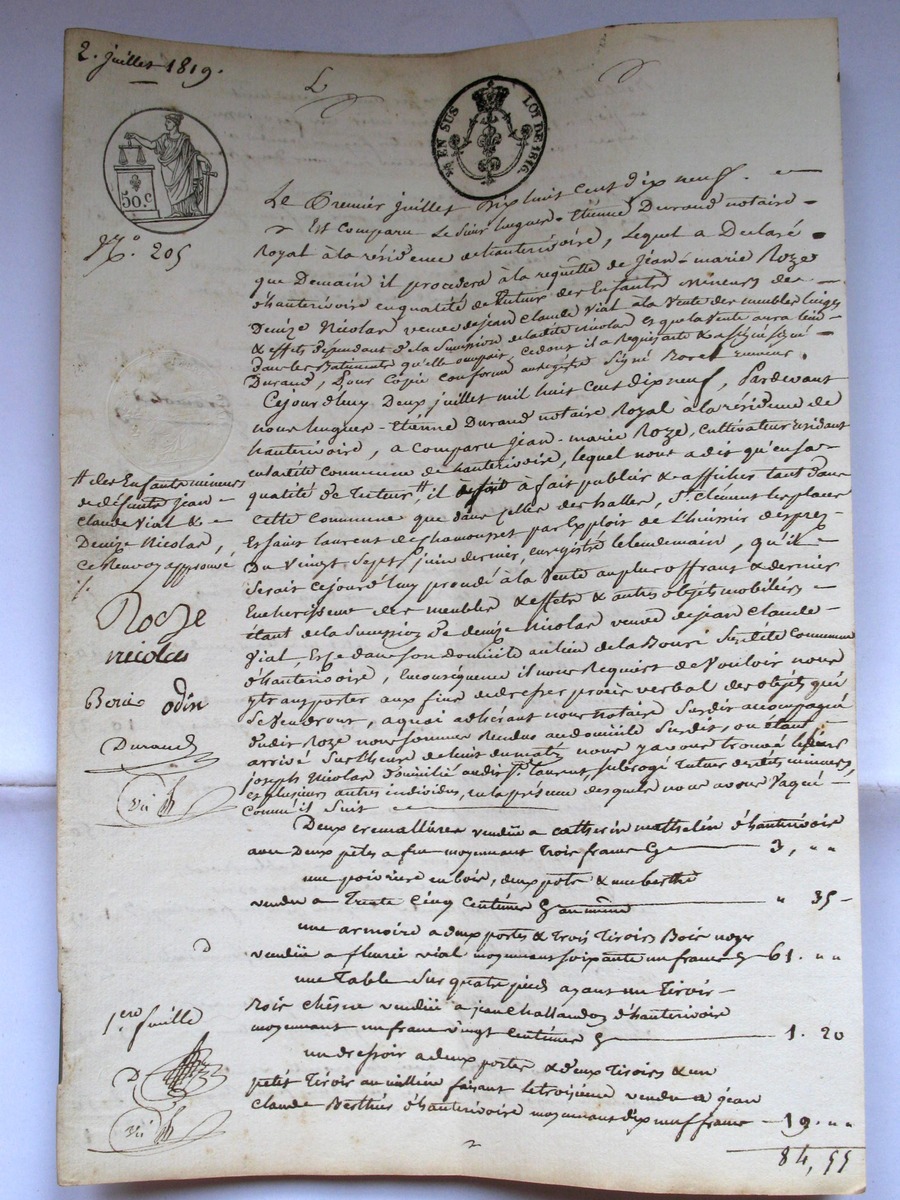 2. juillet 1819.
L
¼ EN SUS LOI DE 1816.
50.c
N.o 205
Le Premier juillet Dix huit Cent Dix neuf.
Est Comparu Le Sieur hugues-Etienne Durand notaire
Royal à la résidence d'hauterivoire, Lequel a Déclaré
que Demain il procedera à la requête de Jean-marie Roze
d'hauterivoire en qualité de tuteur des Enfants mineurs de
Denize Nicolas veuve de jean Claude Vial à la Vente des meubles linges
& effets dépendant de la Succession de ladite nicolas et que la Vente aura lieu
dans les Batiments qu'elle occupait, ce dont il a Requis acte & a signé signé
Durand, Pour Copie conforme enregistré Signé
Cejourd'huy Deux juillet mil huit cent dix neuf, Pardevant
nous hugues-Etienne Durand notaire Royal à la résidence de
hauterivoire, a comparu Jean-marie Roze, cultivateur résidant
en ladite Commune de hauterivoire, lequel nous a dit qu'en sa
qualité de Tuteur # il a fait publier & afficher tant dans
cette Commune que dans celles des halles, St clément les places
Et Saint Laurent de chamousset par Exploit de L'huissier
Du Vingt Sept juin dernier, enregistré le lendemain, qu'il
Serait cejourd'huy procédé à la Vente au plus offrant & dernier
Encherisseur des meubles & effets & autres objets mobiliers
étant de la Succession de denize Nicolas veuve de jean Claude
Vial, en son domicile au lieu de la Bourse Susdite Commune
d'hauterivoire, En conséquence il nous Requiert de Vouloir nous
y transporter aux fins de dresser procès verbal des objets qui
Se Vendront, a quoi adhérant nous notaire Susdit accompagné
dudit Roze nous sommes Rendus au domicile Susdit, ou étant
arrivé Sur l'heure de huit du matin nous y avons trouvé le Sieur
joseph Nicolas domicilié audit St Laurent, subrogé Tuteur desdits mineurs,
et plusieurs autres individus, en la présence desquels nous avons Vaqué
Comme il Suit
# des Enfants mineurs
de défunts jean-
Claude Vial &
Denize Nicolas,
ce Renvoy approuvé
Roze
nicolas
odin
Durand
Vu
Deux cremallières vendües a catherin d'hauterivoire
avec Deux pèles a feu moyennant Trois francs 3, " "
une poivrière en bois, deux pots & une berthe
vendu a Trente Cinq Centimes au même " 35
une armoire a deux portes & Trois Tiroirs Bois noyer
vendüe a fleurie vial moyennant Soixante un francs 61. " "
une Table Sur quatre pieds ayant un Tiroir
Bois chêne vendüe a jean Challandon d'hauterivoire
moyennant un franc vingt Centimes 1. 20
un dressoir a deux portes & deux Tiroirs & un
petit Tiroir au milieu faisant le troisième vendu a jean
Claude Berthier d'hauterivoire moyennant dix neuf francs 19. " "
1ere feuille
D
Vu
84, 55